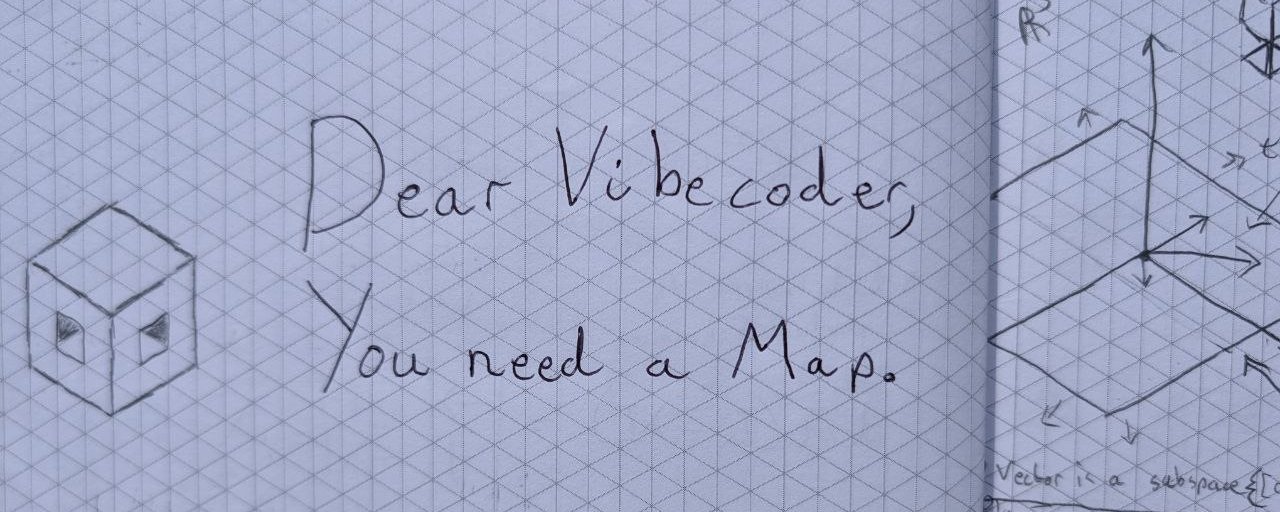 Dear Vibecoder,
You need a Map.
R³
Vector is a subspace